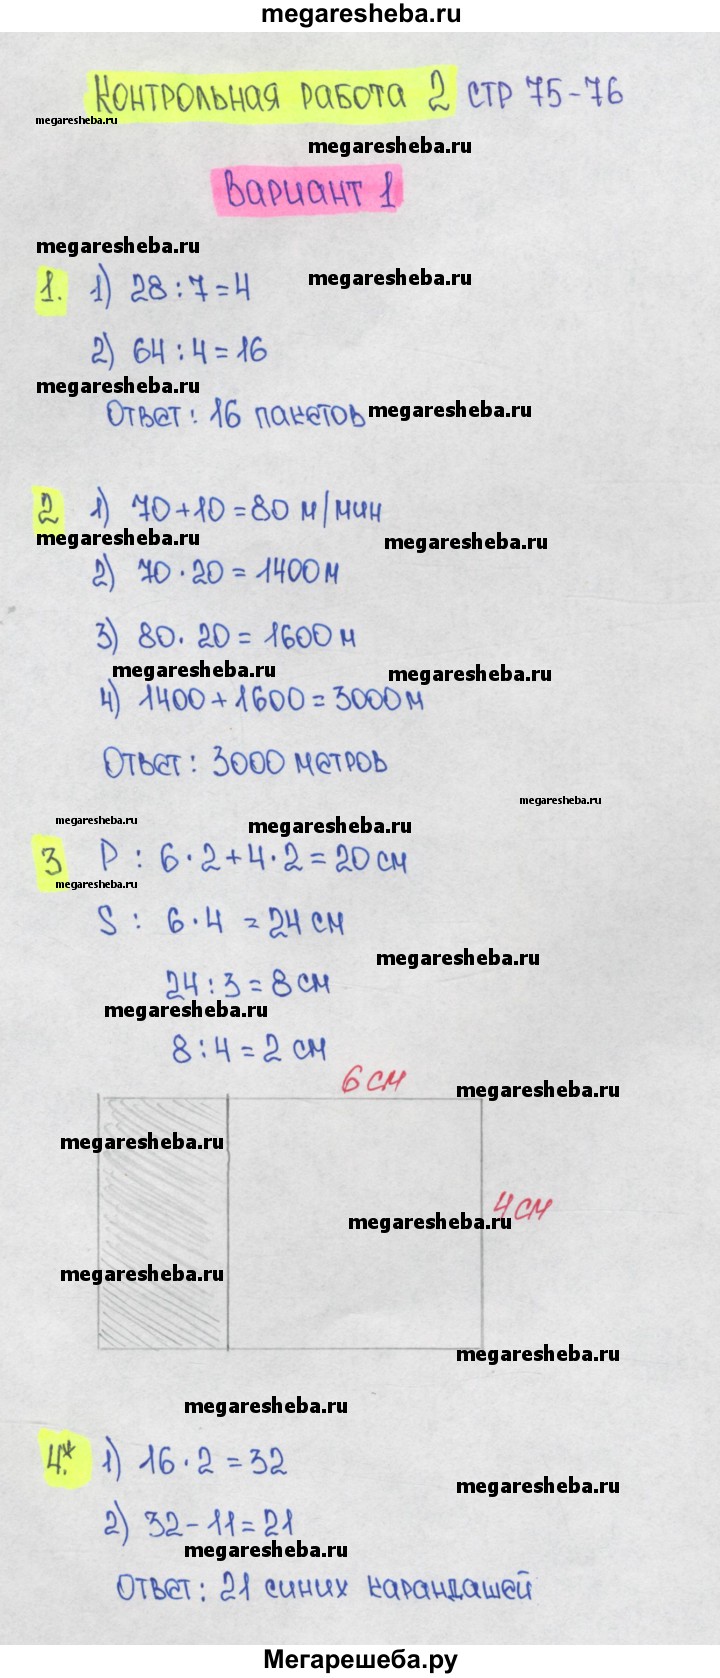 megaresheba.ru
Контрольная работа 2 стр 75-76
megaresheba.ru
megaresheba.ru
Вариант 1
megaresheba.ru
megaresheba.ru
1. 1) 28 : 7 = 4
2) 64 : 4 = 16
megaresheba.ru
Ответ: 16 пакетов
megaresheba.ru
2 1) 70 + 10 = 80 м/мин
megaresheba.ru
megaresheba.ru
2) 70 · 20 = 1400 м
3) 80 · 20 = 1600 м
megaresheba.ru
megaresheba.ru
4) 1400 + 1600 = 3000 м
Ответ: 3000 метров
megaresheba.ru
megaresheba.ru
megaresheba.ru
3 P : 6 · 2 + 4 · 2 = 20 см
megaresheba.ru
S : 6 · 4 = 24 см
megaresheba.ru
24 : 3 = 8 см
megaresheba.ru
8 : 4 = 2 см
6 см
megaresheba.ru
megaresheba.ru
4 см
megaresheba.ru
megaresheba.ru
megaresheba.ru
megaresheba.ru
4.* 1) 16 · 2 = 32
megaresheba.ru
2) 32 - 11 = 21
megaresheba.ru
Ответ: 21 синих карандашей
Мегарешеба.ру